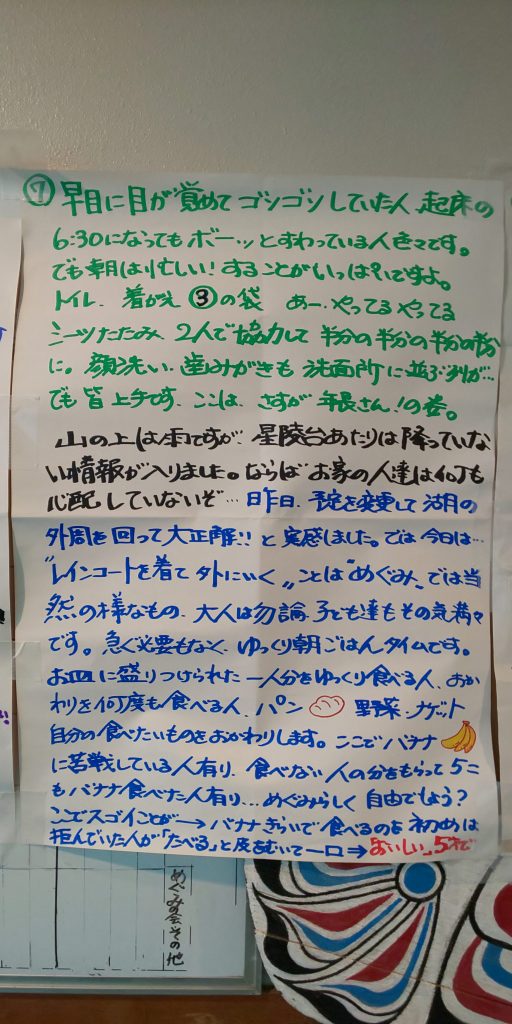 ⑦ 早目に目が覚めて ゴソゴソしていた人、起床の
6:30になってもボーッとすわっている人色々です。
でも朝は忙しい！することがいっぱいですよ。
トイレ、着がえ ③の袋 あー、やってるやってる
シーツたたみ、2人で協力して 半分の半分の半分の半分
に。顔洗い、歯みがきも 洗面所に並ぶ列が…
でも皆上手です、ここは、さすが年長さん！の姿。
山の上は雨ですが、星陵台あたりは降っていな
い情報が入りました。ならばお家の人達は何も
心配していないぞ… 昨日、予定を変更して 湖の
外周を回って大正解!! と実感しました。では今日は…
"レインコートを着て外にいく" ことは"めぐみ"では当
然の様なもの、大人は勿論、子ども達もその気満々
です。急ぐ必要もなく、ゆっくり朝ごはんタイムです。
お皿に盛りつけられた 一人分をゆっくり食べる人、おか
わりを何度も食べる人、パン 野菜・ナゲット
自分の食べたいものをおかわりします。ここでバナナ
に苦戦している人有り、食べない人の分をもらって5こ
もバナナ食べた人有り… めぐみらしく自由でしょう？
ここでスゴイことが→ バナナきらいで食べるのを初めは
拒んでいた人が「たべる」と皮をむいて一口⇒ "おいしい" 5才で
めぐみの会その他